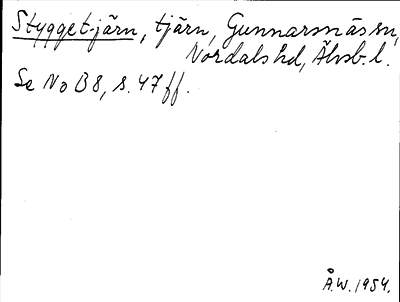 Stygget-järn, tjärn, Gunnarsnäs sn,
Nordals hd, Älvsb. l.
Se NoB 8, s. 47 ff.
Å.W. 1954.